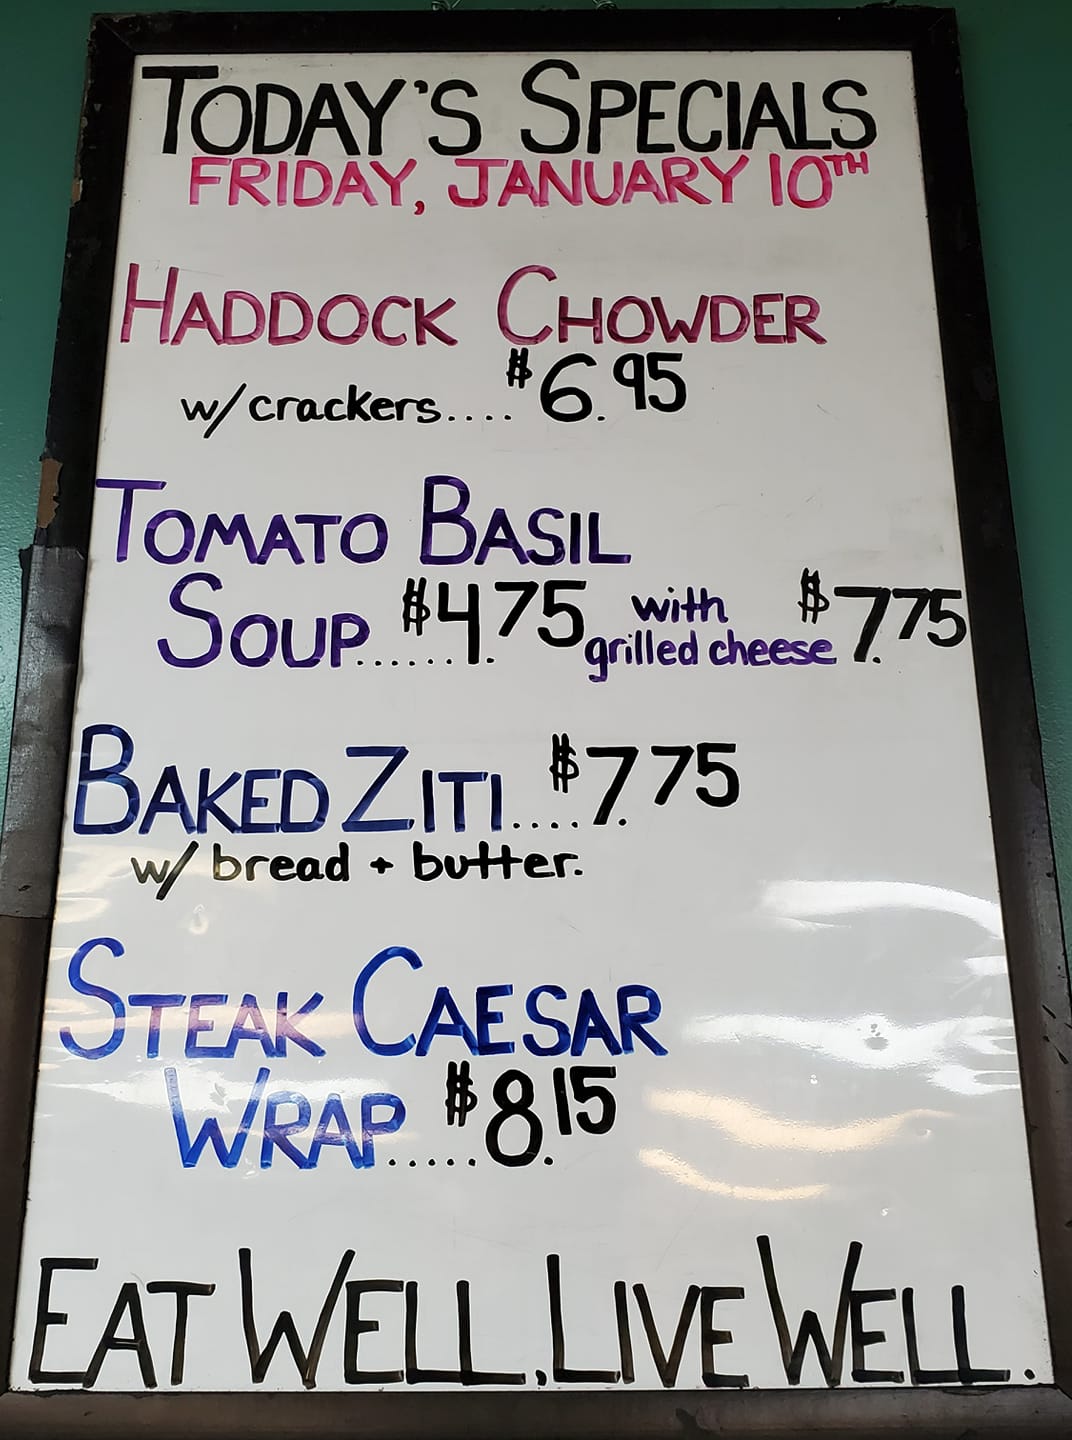 TODAY'S SPECIALS
FRIDAY, JANUARY 10TH
HADDOCK CHOWDER
w/crackers.... $6.95
TOMATO BASIL
SOUP...... $4.75 with grilled cheese $7.75
BAKED ZITI.... $7.75
w/ bread + butter.
STEAK CAESAR
WRAP..... $8.15
EAT WELL, LIVE WELL.